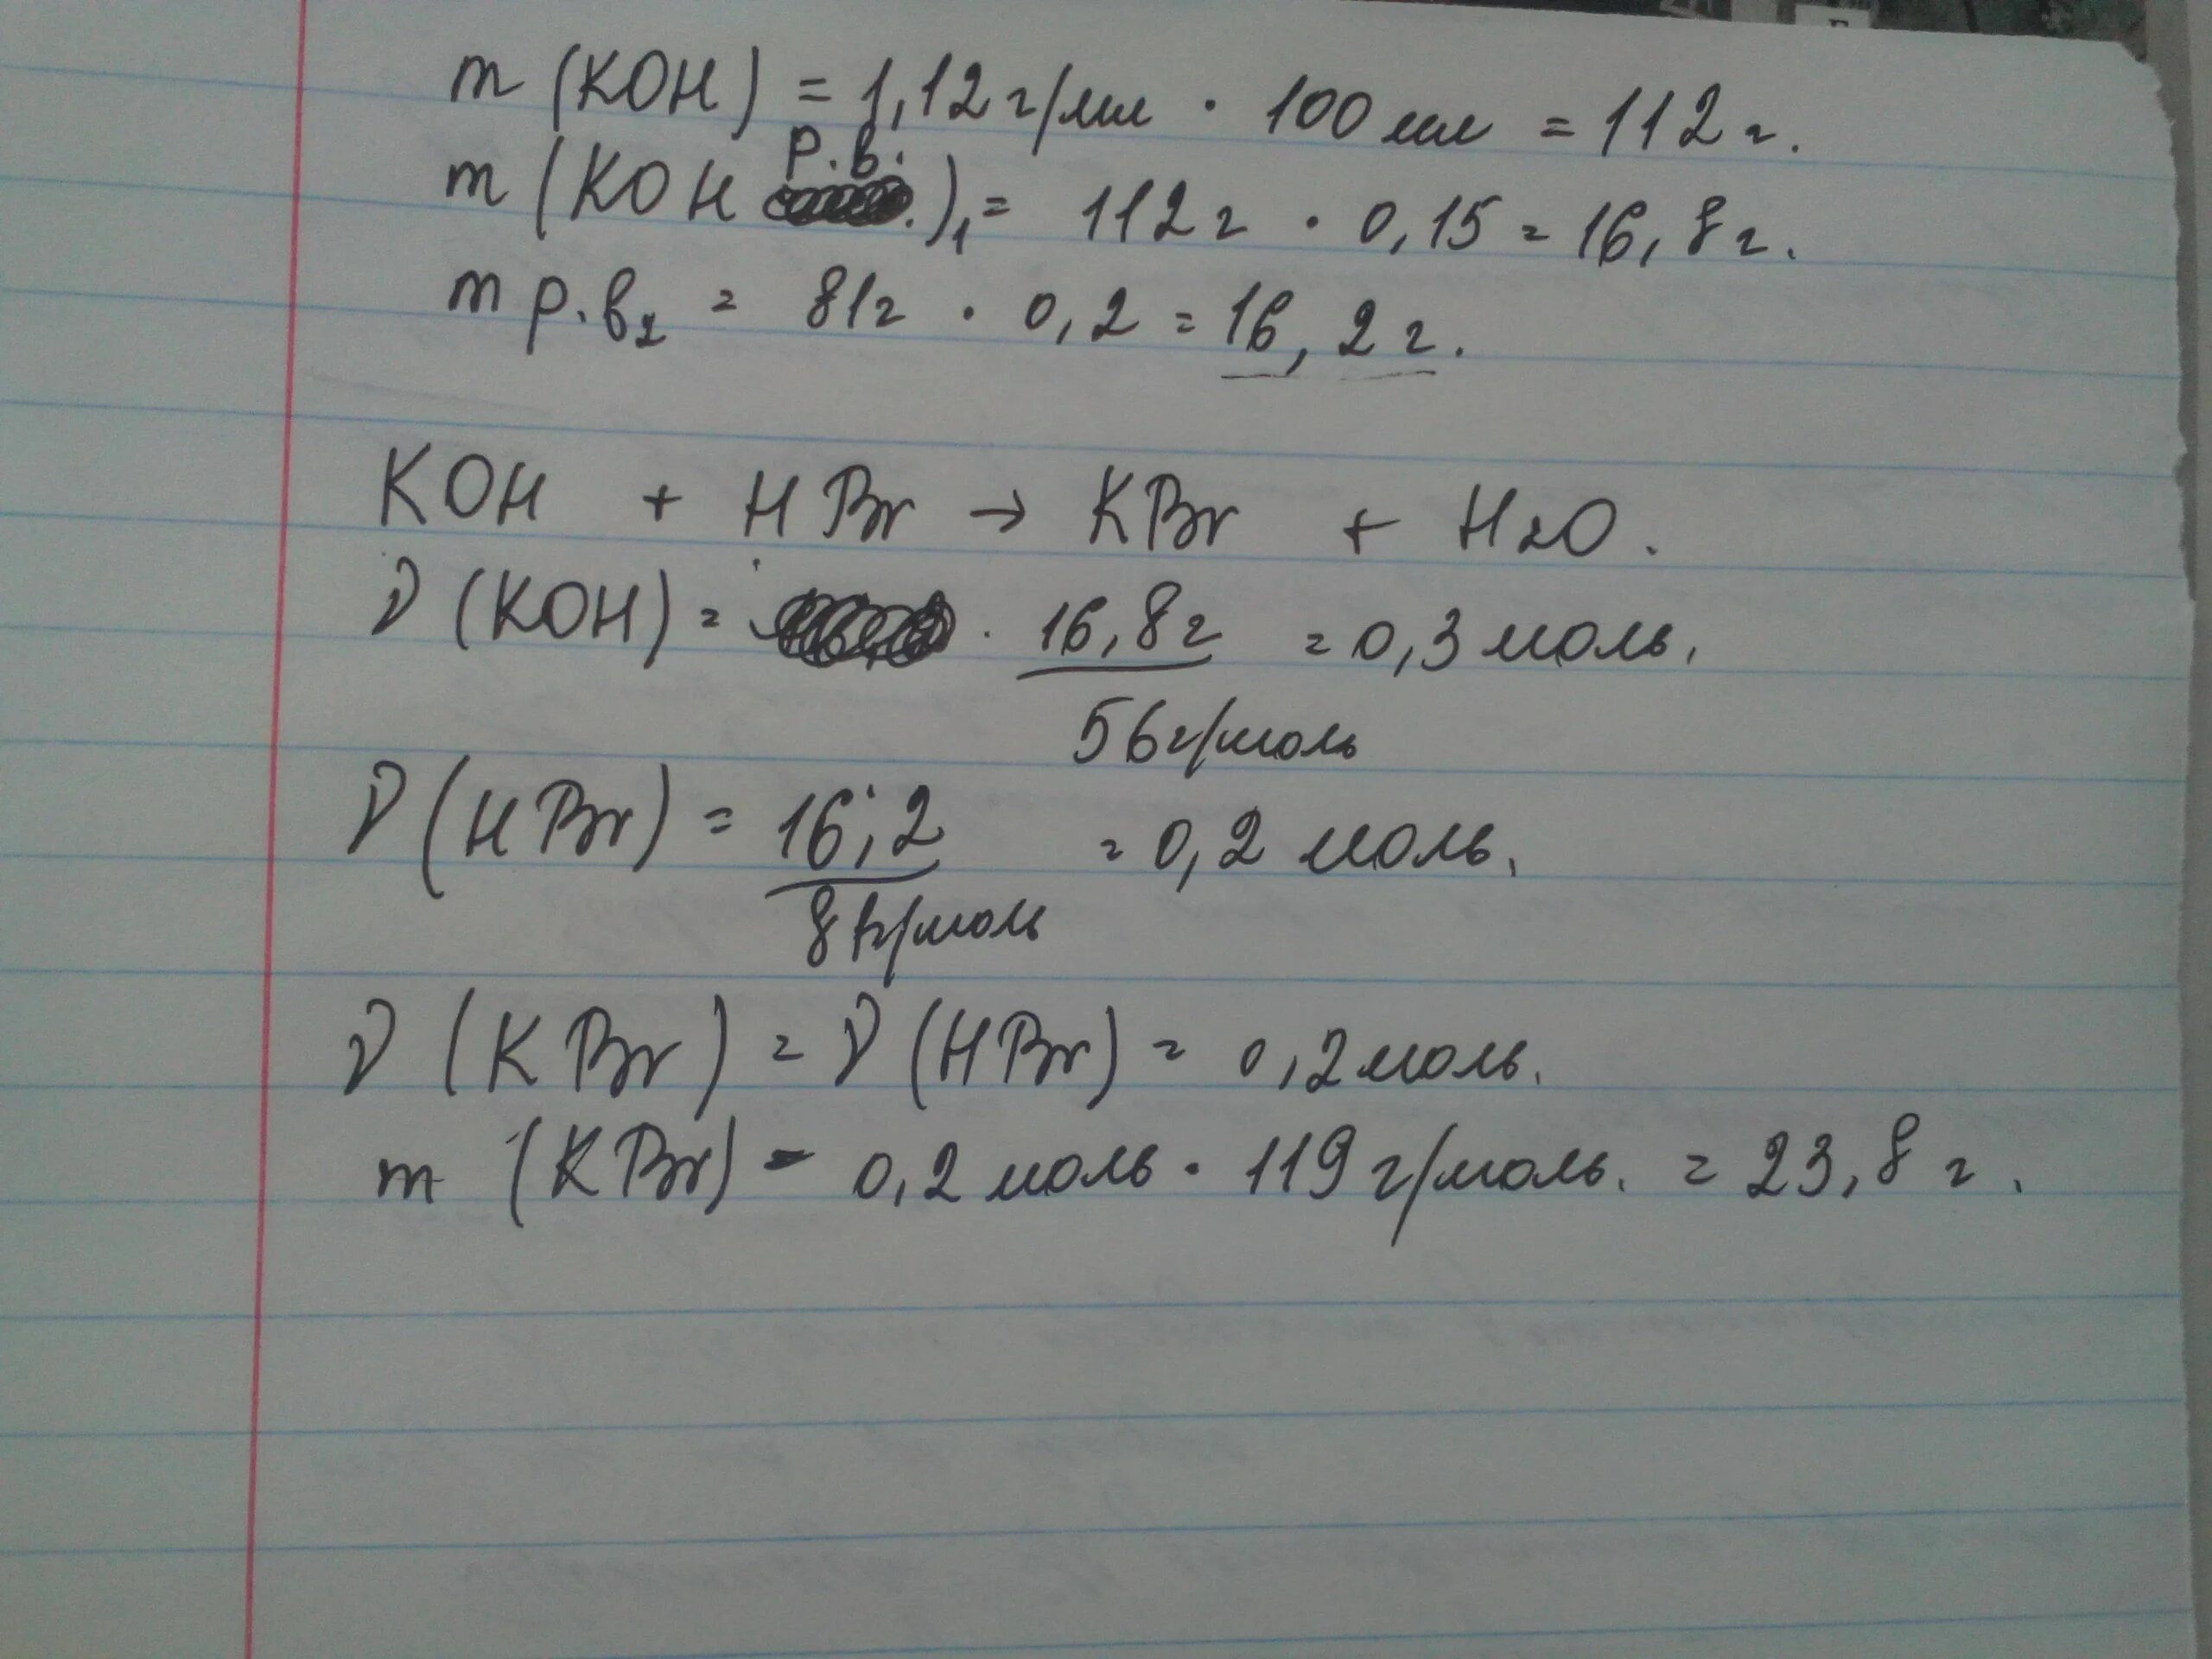 m (KOH) = 1,12 г/мл · 100 мл = 112 г.
m (KOH р.в.)₁ = 112 г · 0,15 = 16,8 г.
m р.в₂ = 81г · 0,2 = 16,2 г.
KOH + HBr → KBr + H₂O.
ν (KOH) = · 16,8г = 0,3 моль.
56г/моль
ν (HBr) = 16,2 = 0,2 моль.
81г/моль
ν (KBr) = ν (HBr) = 0,2 моль.
m (KBr) = 0,2 моль · 119 г/моль. = 23,8 г.